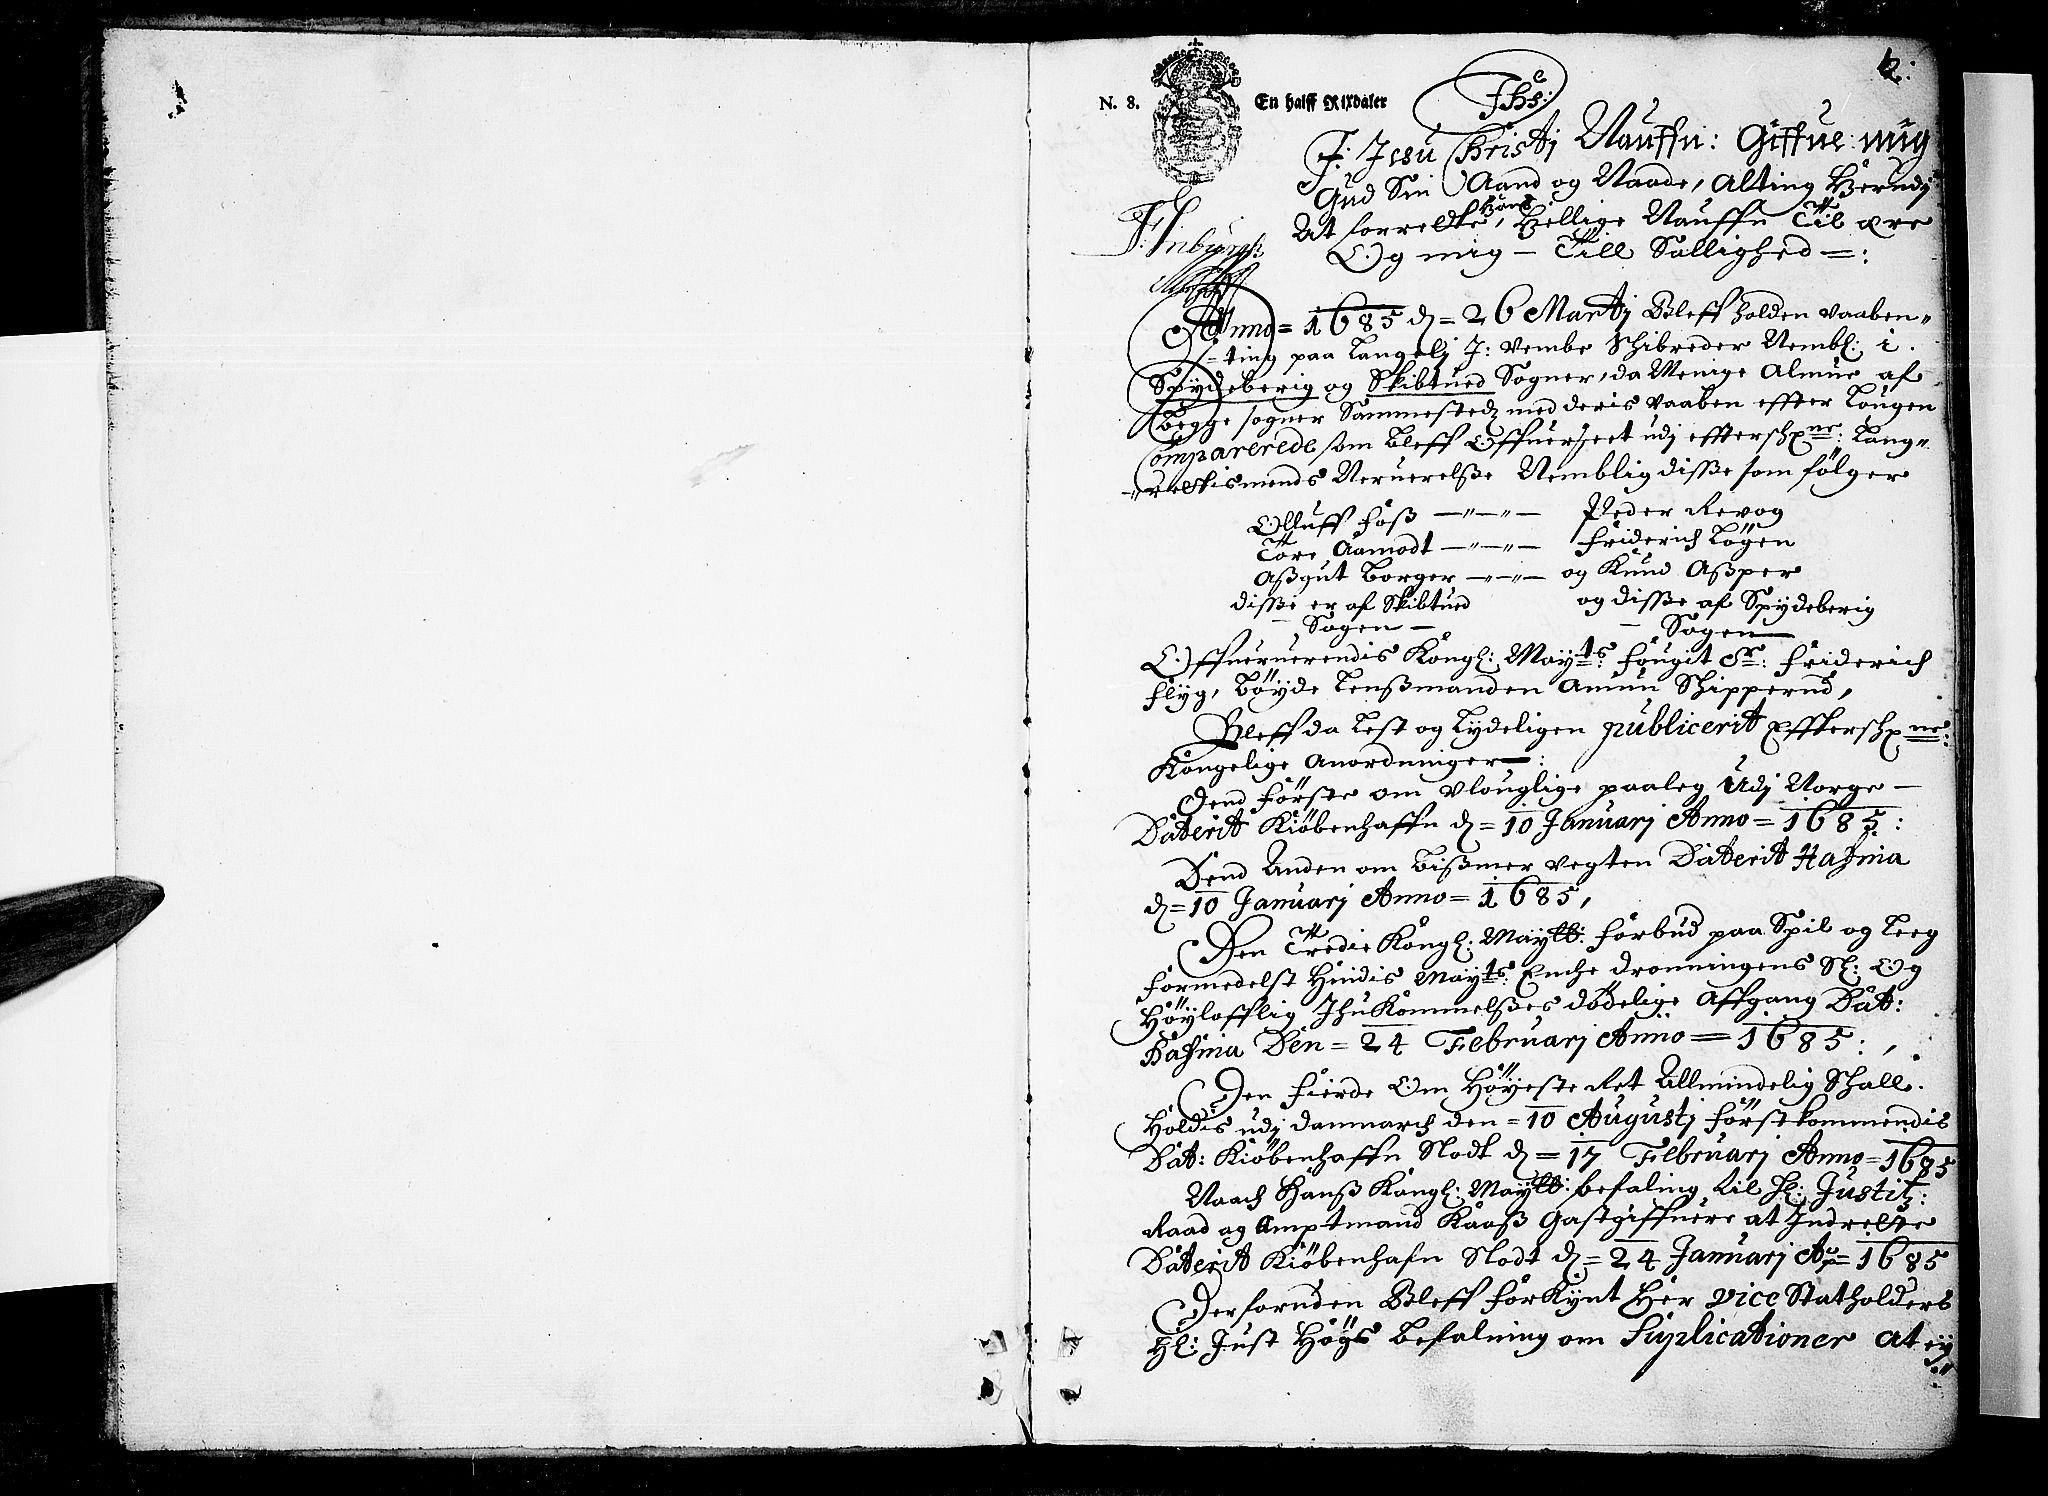 2:
N. 8. En halff Rixdaler
Ihs:
J: Jesu Christj Nauffn: Giffue mig
Gud Sin Aand og Naade, Alting Herudj
At forrette, Hans Hellige Nauffn Til ære
Og mig – Till Sallighed =:
Anno = 1685 d = 26 Martj Bleff holden vaaben„
=ting paa Langelj J: Vembe Schibreder Nembl: i.
Spydeberig og Skibtued Sogner, da Menige Almue af
begge sogner Sammestedz med deris vaaben effter Lougen
Comparerede som bleff Offuerseet udj efftersch:ne: Laug„
„rettismends Neruerelsse Nemblig disse som følger
Olluff Foss —„—„— Peder Revog
Tore Aamodt —„—„— Friderich Løgen
Assgut Borger —„—„— og Knud Assper
disse er af Skibtued og disse af Spydeberig
– Sogen – – Sogen —
Offueruerendis Kongl: Mayts: Fougit Sr: Friderich
Flyg, Bøyde Lenssmanden Amun Schipperud,
Bleff da Lest og Lydeligen publicerit Efftersch:ne:
Kongelige Anordninger —:
Dend Første om Vlouglige paaleg Udj Norge –
Daterit Kiöbenhaffn d = 10 Januarj Anno = 1685:
Dend Anden om Bissmer vegten Daterit Hafnia
d = 10 Januarj Anno = 1685,
Den Tredie Kongl: Maytt: Forbud paa Spil og Leeg
Formedelst Hindis Mayts: Enche Dronningens Sl: Og
Høylofflig Ihukommelsses dødelige Affgang Dat:
Hafnia Den = 24 Februarj Anno = 1685:,
Den Fierde Om Høyeste Ret Allmindelig Schall.
Holdis udj Danmarch den = 10 Augustj førstkommendis
Dat: Kiöbenhaffn Slodt d = 17 Februarj Anno = 1685
Naach Hanss Kongl: Maytt: befaling til Hl: Justitz:
Raad og Amptmand Kaass Gastgiffuere at Indrette
Daterit Kiöbenhafn Slodt d = 24 Januarj Ao = 1685
Der foruden Bleff Forkynt Her vice Statholders
Hl: Just Høgs befalning om Suplicationer at ey